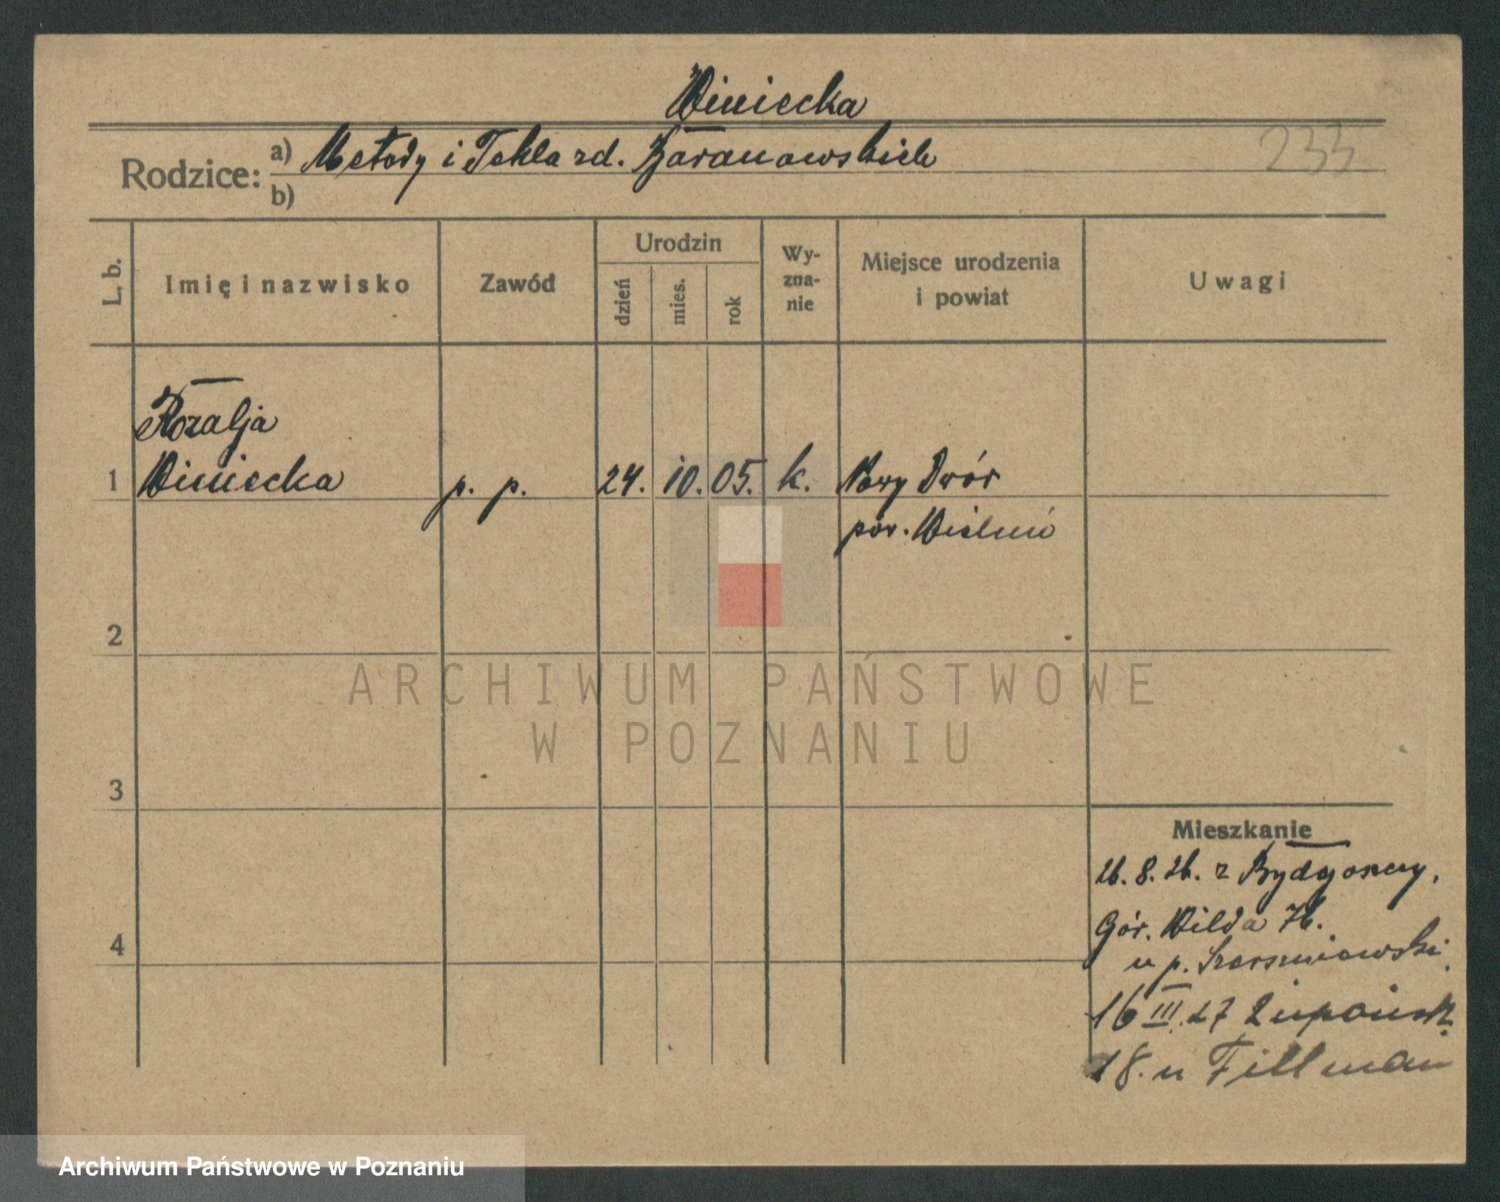 Winiecka
233
Rodzice: a) Metody i Tekla zd. Baranowskich
b)
L. b.
Imię i nazwisko
Zawód
Urodzin
dzień
mies.
rok
Wy-
zna-
nie
Miejsce urodzenia
i powiat
Uwagi
Rozalja
1 Winiecka p. p. 24. 10. 05. k. Nowy Dwór
pow. Wieluń
2
3
4
Mieszkanie
26. 8. 26. z Bydgoszczy.
Gór. Wilda 76.
u p.
16 III. 27
18. u Tillman
ARCHIWUM PAŃSTWOWE
W POZNANIU
Archiwum Państwowe w Poznaniu